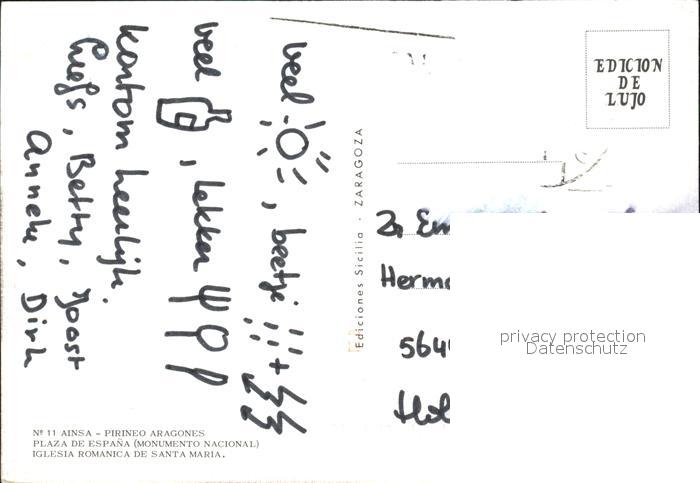 veel , beetje +
veel , lekker
kortom heerlijk.
Liefs, Betty, Joost
Anneke, Dirk
Nº 11 AINSA - PIRINEO ARAGONES
PLAZA DE ESPAÑA (MONUMENTO NACIONAL)
IGLESIA ROMANICA DE SANTA MARIA.
Ediciones Sicilia · ZARAGOZA
EDICION
DE
LUJO
Herm
564
privacy protection
Datenschutz